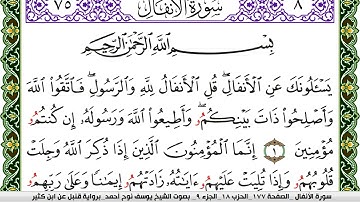 ٧٥ سُورَةُ الأَنفَالِ ٨
بِسْمِ اللَّهِ الرَّحْمَٰنِ الرَّحِيمِ
يَسْـَٔلُونَكَ عَنِ الْأَنفَالِ ۖ قُلِ الْأَنفَالُ لِلَّهِ وَالرَّسُولِ ۖ فَاتَّقُوا اللَّهَ
وَأَصْلِحُوا ذَاتَ بَيْنِكُمُۥ ۖ وَأَطِيعُوا اللَّهَ وَرَسُولَهُۥٓ إِن كُنتُمُۥ
مُؤْمِنِينَ ١ إِنَّمَا الْمُؤْمِنُونَ الَّذِينَ إِذَا ذُكِرَ اللَّهُ وَجِلَتْ
قُلُوبُهُمُۥ وَإِذَا تُلِيَتْ عَلَيْهِمُۥٓ ءَايَٰتُهُۥ زَادَتْهُمُۥٓ إِيمَٰنًا وَعَلَىٰ رَبِّهِمُۥ
سورة الأنفال . الصفحة ١٧٧ . الحزب ١٨ . الجزء ٩ . بصوت الشيخ يوسف نوح أحمد . برواية قنبل عن ابن كثير